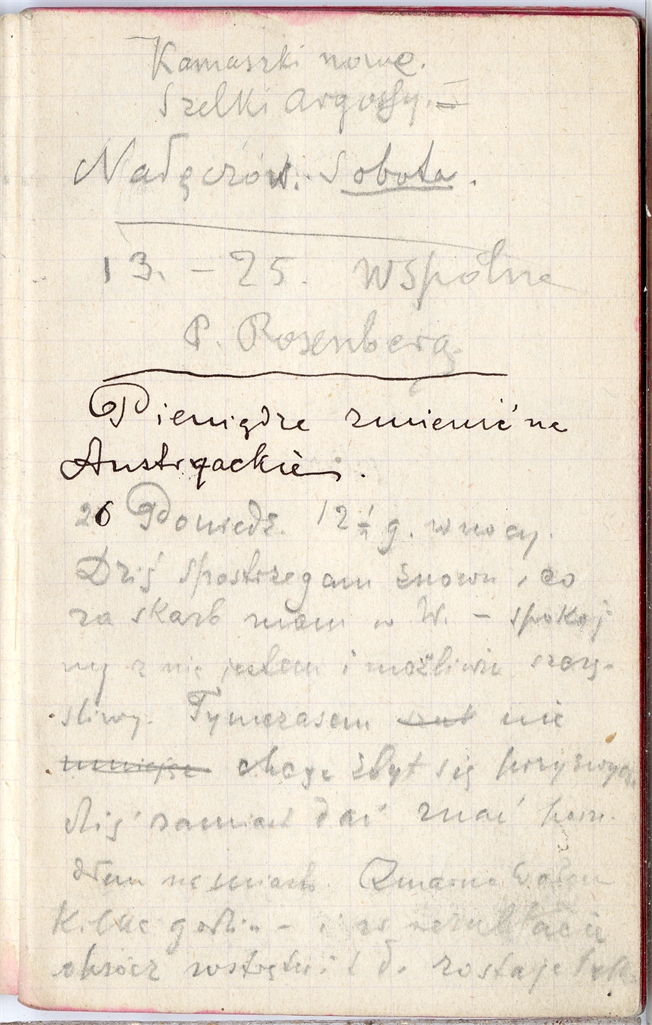 Kamaszki nowe.
Szelki
Nałęczów. Sobota.
13. – 25. Wspólna
P. Rosenberg
Pieniądze zmienić na
Austryackie.
26 Poniedz. 12 1/2 g. w nocy.
Dziś spostrzegam znowu, co
za skarb mam w W. – spokoj
ny z nią jestem i możliwie szczę-
śliwy. Tymczasem nie
chcę zbyt się
Dziś zamiast dać znać
na
Kilka godzin – i w rezultacie
oprócz wstrętu i t d. zostaje